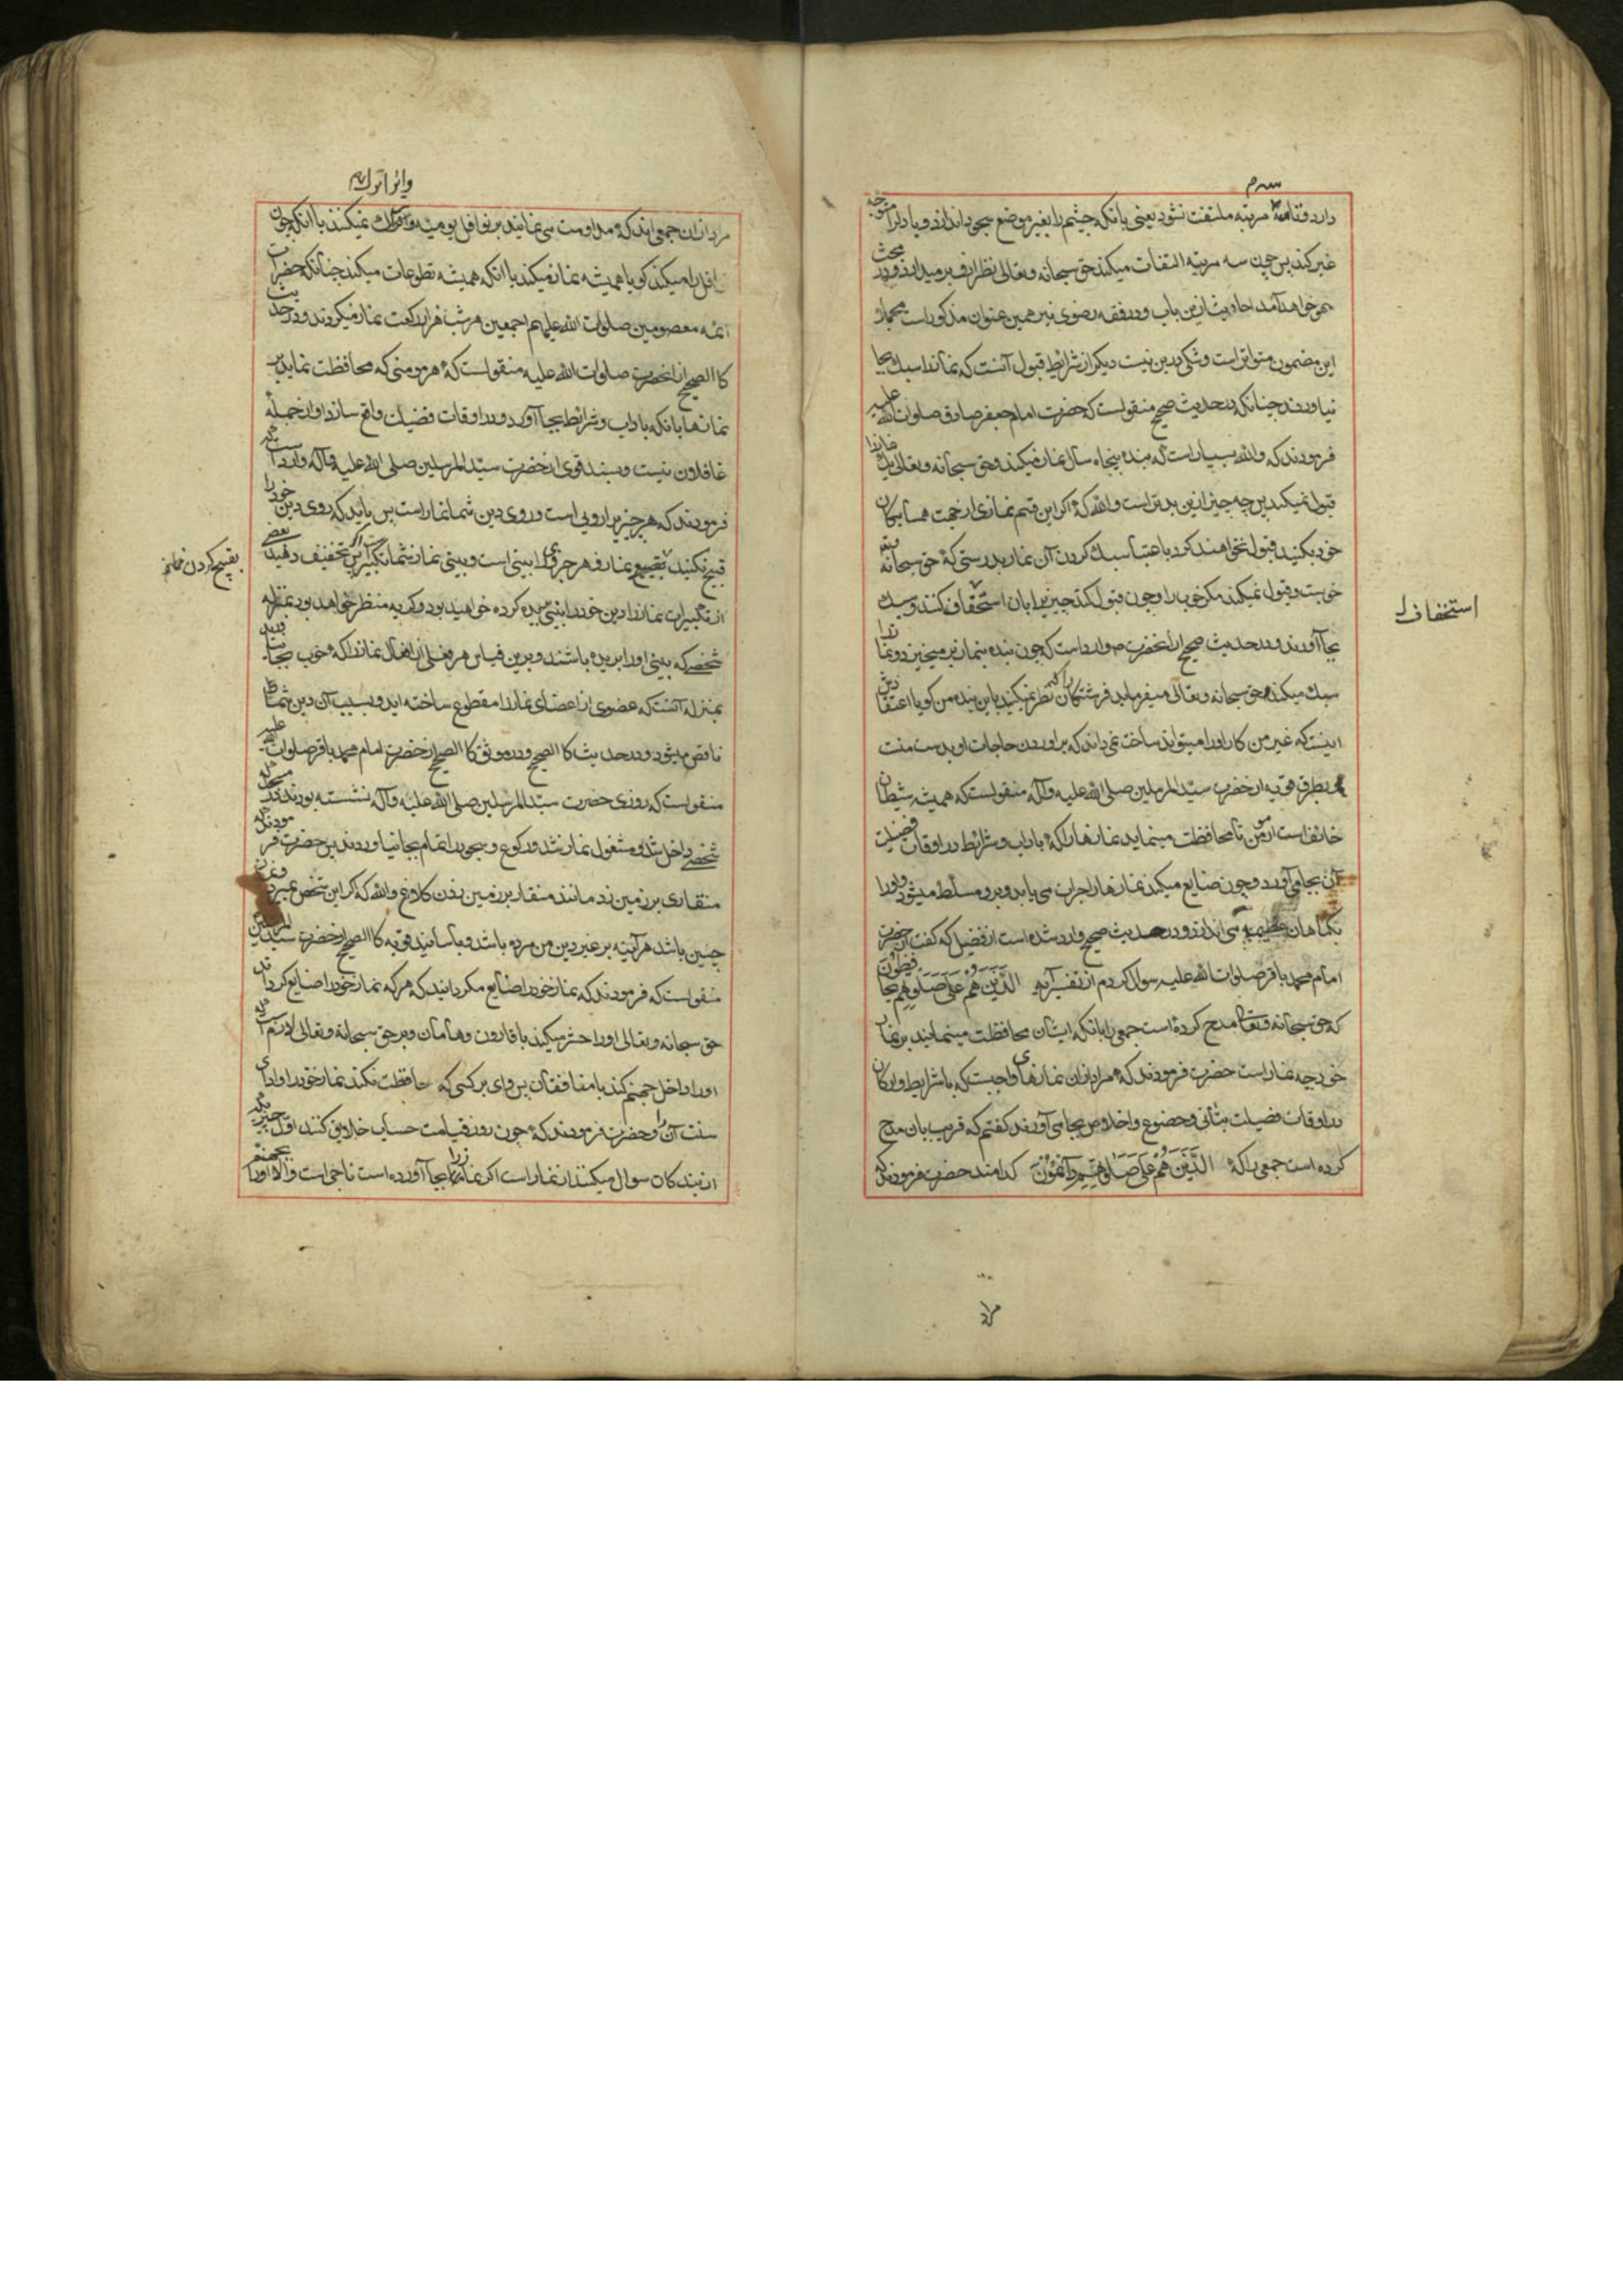 سه م
دارد و تا سه مرتبه ملتفت نشود یعنی بانکه چشم را بغیر موضع سجود اندازد و یا دلرا متوجه
غیر کند پس چون سه مرتبه التفات میکند حق سبحانه و تعالی نظر ازو بر میدارد و در بحث
خواهد آمد احادیث ازین باب و در فقه رضوی نیز همین عنوان مذکور است مجملا
این مضمون متواتر است و شکی درین نیست دیگر از شرائط قبول آنست که نماز را سبک بجا
نیاورند چنانکه در حدیث صحیح منقولست که حضرت امام جعفر صادق صلوات الله علیه
فرمودند که والله بسیار است که بنده پنجاه سال نماز میکند و حق سبحانه و تعالی یک نماز را
قبول نمیکند پس چه چیز ازین بدتر است والله که اگر این قسم نمازی از جهت همسایکان
خود بکنید قبول نخواهند کرد باعتبار سبک کردن آن نماز بدرستی که حق سبحانه
خوبست و قبول نمیکند مکر خوب را و چون قبول کند چیزیرا بان استخفاف کنند و سبک
استخفاف
بجا آورند و در حدیث صحیح از آنحضرت وارد است که چون بنده بنماز بر میخیزد و نماز را
سبک میکند حق سبحانه و تعالی میفرماید فرشتکان را که نظر نمیکنید باین بنده من کویا اعتقادش
اینست که غیر من کار او را میتواند ساخت نمی داند که بر آوردن حاجات او بدست منست
و بطرق قویه از حضرت سید المرسلین صلی الله علیه وآله منقولست که همیشه شیطان
خائف است از مومن تا محافظت مینماید نمازها را که باداب و شرائط در اوقات فضیلت
آن بجا می آورد و چون ضایع میکند نمازها را جرات می یابد و برو مسلط میشود و او را
بکناهان عظیمه می اندازد و در حدیث صحیح وارد شده است از فضیل که کفت از حضرت
امام محمد باقر صلوات الله علیه سوال کردم از تفسیر آیه الَّذِینَ هُمْ عَلَی صَلَوتِهِمْ یُحَافِظُونَ
که حق سبحانه و تعالی مدح کرده است جمعی را بانکه ایشان محافظت مینمایند بر نماز
خود چه نماز است حضرت فرمودند که مراد از ان نمازهای واجبست که با شرایط و ارکان
در اوقات فضیلت بتأنی و خضوع و اخلاص بجا می آورند کفتم که قریب بان مدح
کرده است جمعی را که الَّذِینَ هُمْ عَلَی صَلَوتِهِمْ دَآئِمُونَ کدامند حضرت فرمودند که
مراد
مراد از ان جمعی اند که مداومت می نمایند بر نوافل یومیه و ترک نمیکنند با آنکه چون
نوافل را میکند کویا همیشه نماز میکند یا آنکه همیشه تطوعات میکند چنانکه حضرات
ائمه معصومین صلوات الله علیهم اجمعین هر شب هزار رکعت نماز میکردند و در حدیث
کالصحیح از آنحضرت صلوات الله علیه منقولست که هر مومنی که محافظت نماید بر
نمازها بانکه باداب و شرائط بجا آورد و در اوقات فضیلت واقع سازد او از جمله
غافلون نیست و بسند قوی از حضرت سید المرسلین صلی الله علیه وآله وارد است که
فرمودند که هر چیز را رویی است و روی دین شما نماز است پس باید که روی دین خود را
قبیح نکنید بتقبیح نماز و هر چیزی را بینی است و بینی نماز شما تکبیر است اکر تخفیف دهید بعضی
بقبیح کردن نماز
از تکبیرات نماز را دین خود را بینی بریده کرده خواهید بود و کریه منظر خواهد بود بمنزله
شخصی که بینی او را بریده باشند و برین قیاس هر فعلی از افعال نماز را که خوب بجا نیاورید
بمنزله آنست که عضوی از اعضای نماز را مقطوع ساخته اید و بسبب آن دین شما
ناقص میشود و در حدیث کالصحیح و در موثق کالصحیح از حضرت امام محمد باقر صلوات الله علیه
منقولست که روزی حضرت سید المرسلین صلی الله علیه وآله نشسته بودند در مسجد که
شخصی داخل شد و مشغول نماز شد و رکوع و سجود را تمام بجا نیاورد پس حضرت فرمودند که
منقاری بر زمین زد مانند منقار بر زمین زدن کلاغ والله که اکر این شخص بمیرد و نمازش
چنین باشد هر آینه بر غیر دین من مرده باشد و باسانید قویه کالصحیح از حضرت سید المرسلین
منقولست که فرمودند که نماز خود را ضایع مکردانید که هر که نماز خود را ضایع کرداند
حق سبحانه و تعالی او را حشر میکند با قارون و هامان و بر حق سبحانه و تعالی لازم است که
او را داخل جهنم کند با منافقان پس وای بر کسی که محافظت نکند نماز خود را و ادای
سنت آن را و حضرت فرمودند که چون روز قیامت حساب خلایق کنند اول چیزی که
از بندکان سوال میکنند از نماز است اکر نماز را بجا آورده است ناجی است والا او را بجهنم